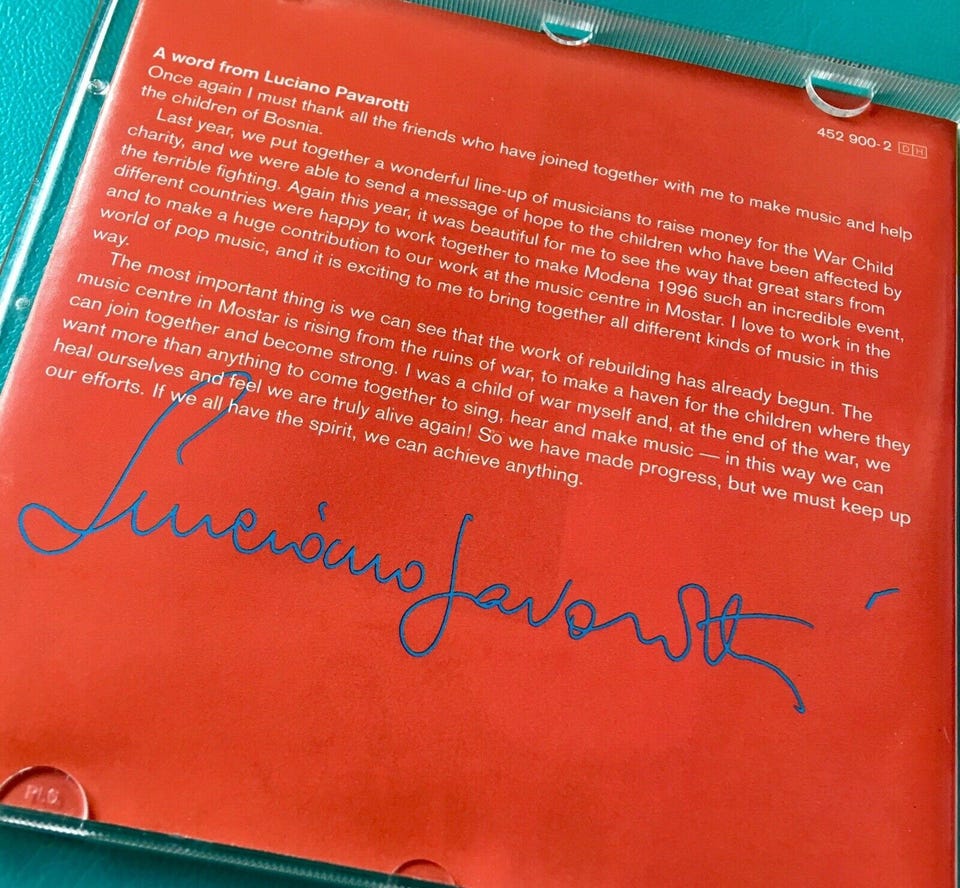 A word from Luciano Pavarotti
Once again I must thank all the friends who have joined together with me to make music and help
the children of Bosnia.
452 900-2 DH
Last year, we put together a wonderful line-up of musicians to raise money for the War Child
charity, and we were able to send a message of hope to the children who have been affected by
the terrible fighting. Again this year, it was beautiful for me to see the way that great stars from
different countries were happy to work together to make Modena 1996 such an incredible event,
and to make a huge contribution to our work at the music centre in Mostar. I love to work in the
world of pop music, and it is exciting to me to bring together all different kinds of music in this
way.
The most important thing is we can see that the work of rebuilding has already begun. The
music centre in Mostar is rising from the ruins of war, to make a haven for the children where they
can join together and become strong. I was a child of war myself and, at the end of the war, we
want more than anything to come together to sing, hear and make music — in this way we can
heal ourselves and feel we are truly alive again! So we have made progress, but we must keep up
our efforts. If we all have the spirit, we can achieve anything.
Luciano Pavarotti